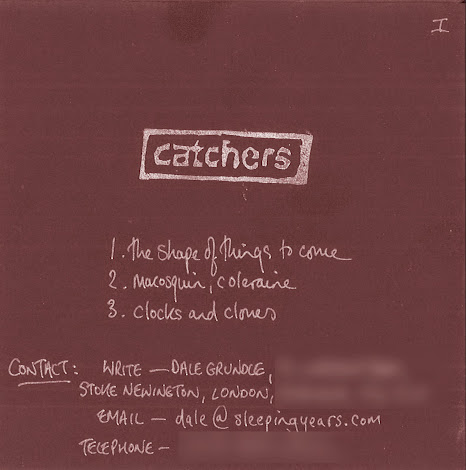 I
catchers
1. The shape of things to come
2. Macosquin, Coleraine
3. Clocks and clones
CONTACT: WRITE — DALE GRUNDLE,
STOKE NEWINGTON, LONDON,
EMAIL — dale@sleepingyears.com
TELEPHONE —